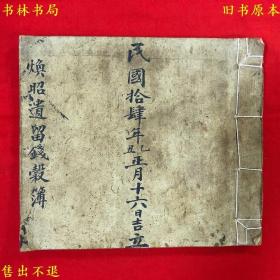 书林书局
旧书原本
民國拾肆年乙丑正月十六日吉立
煥昭遺留錢穀簿
售出不退